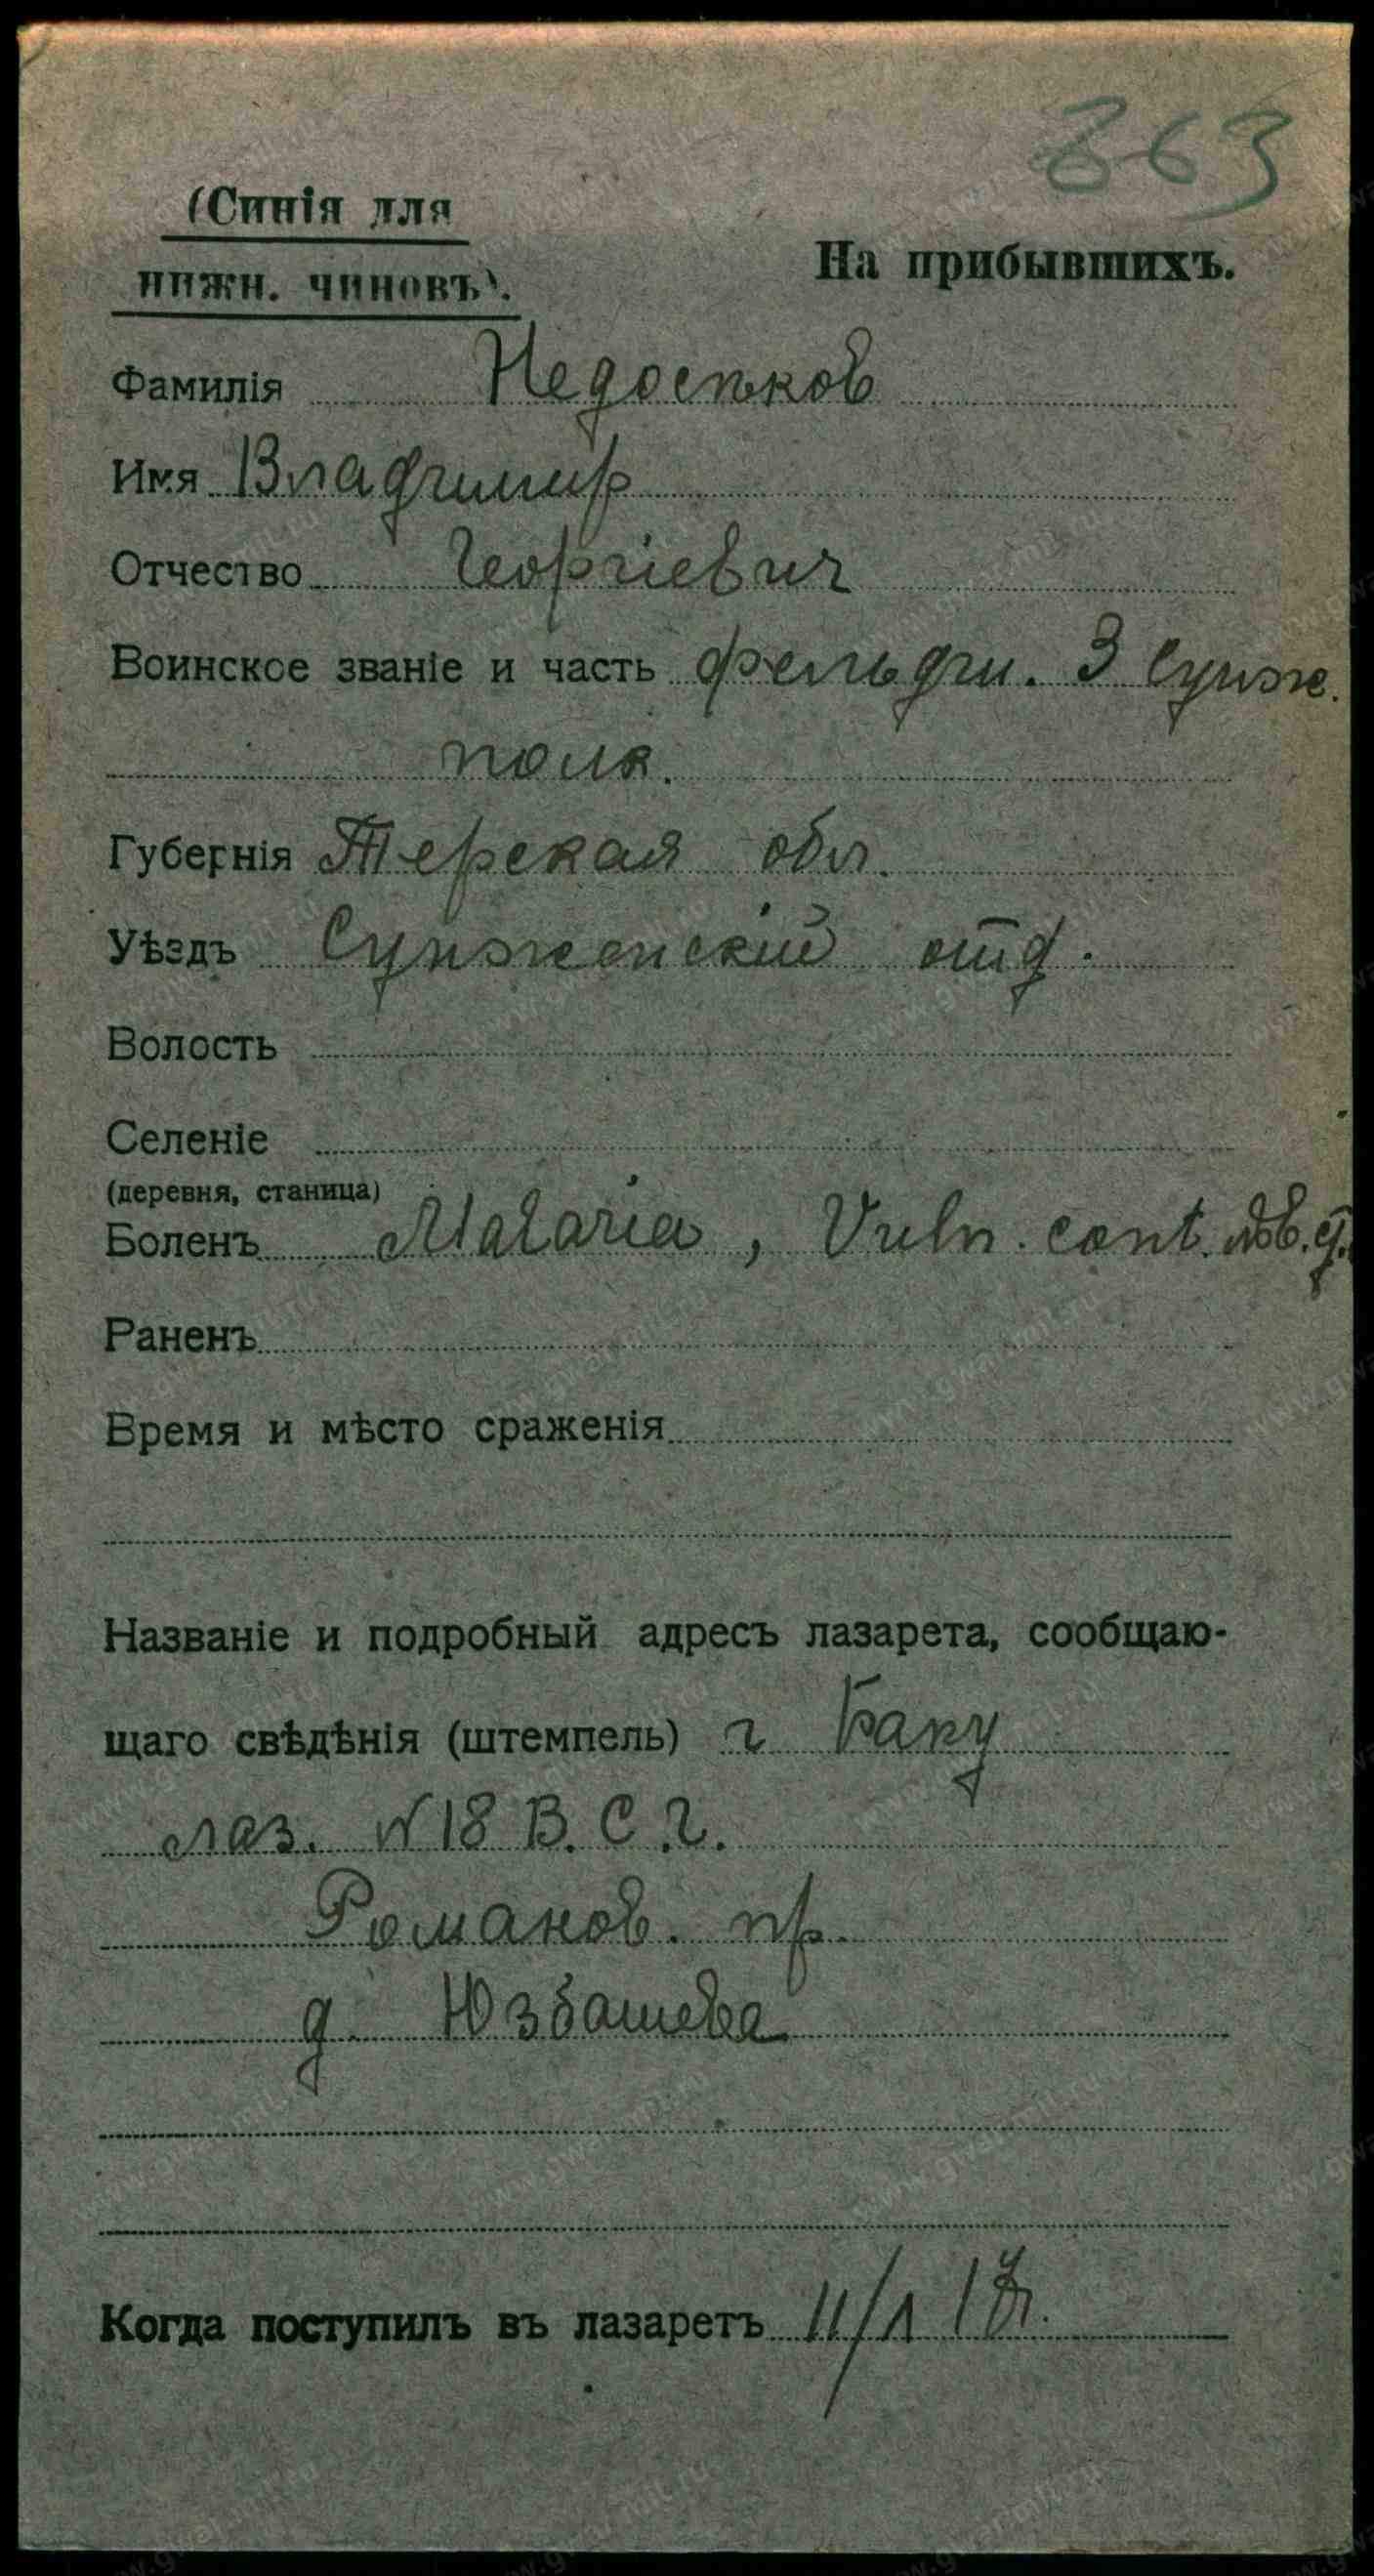 863
(Синія для
нижн. чиновъ).
На прибывшихъ.
Фамилія Недосѣков
Имя Владимир
Отчество Георгіевич
Воинское званіе и часть фельдш. 3 Сунж.
полк.
Губернія Терская обл.
Уѣздъ Сунженскій отд.
Волость
Селеніе
(деревня, станица)
Боленъ Malaria, Vuln. cont.
Раненъ
Время и мѣсто сраженія
Названіе и подробный адресъ лазарета, сообщаю-
щаго свѣдѣнія (штемпель) г Баку
лаз. N 18 В. С. Г.
Романов. пр.
д. Юзбашева
Когда поступилъ въ лазаретъ 11/1 17г.